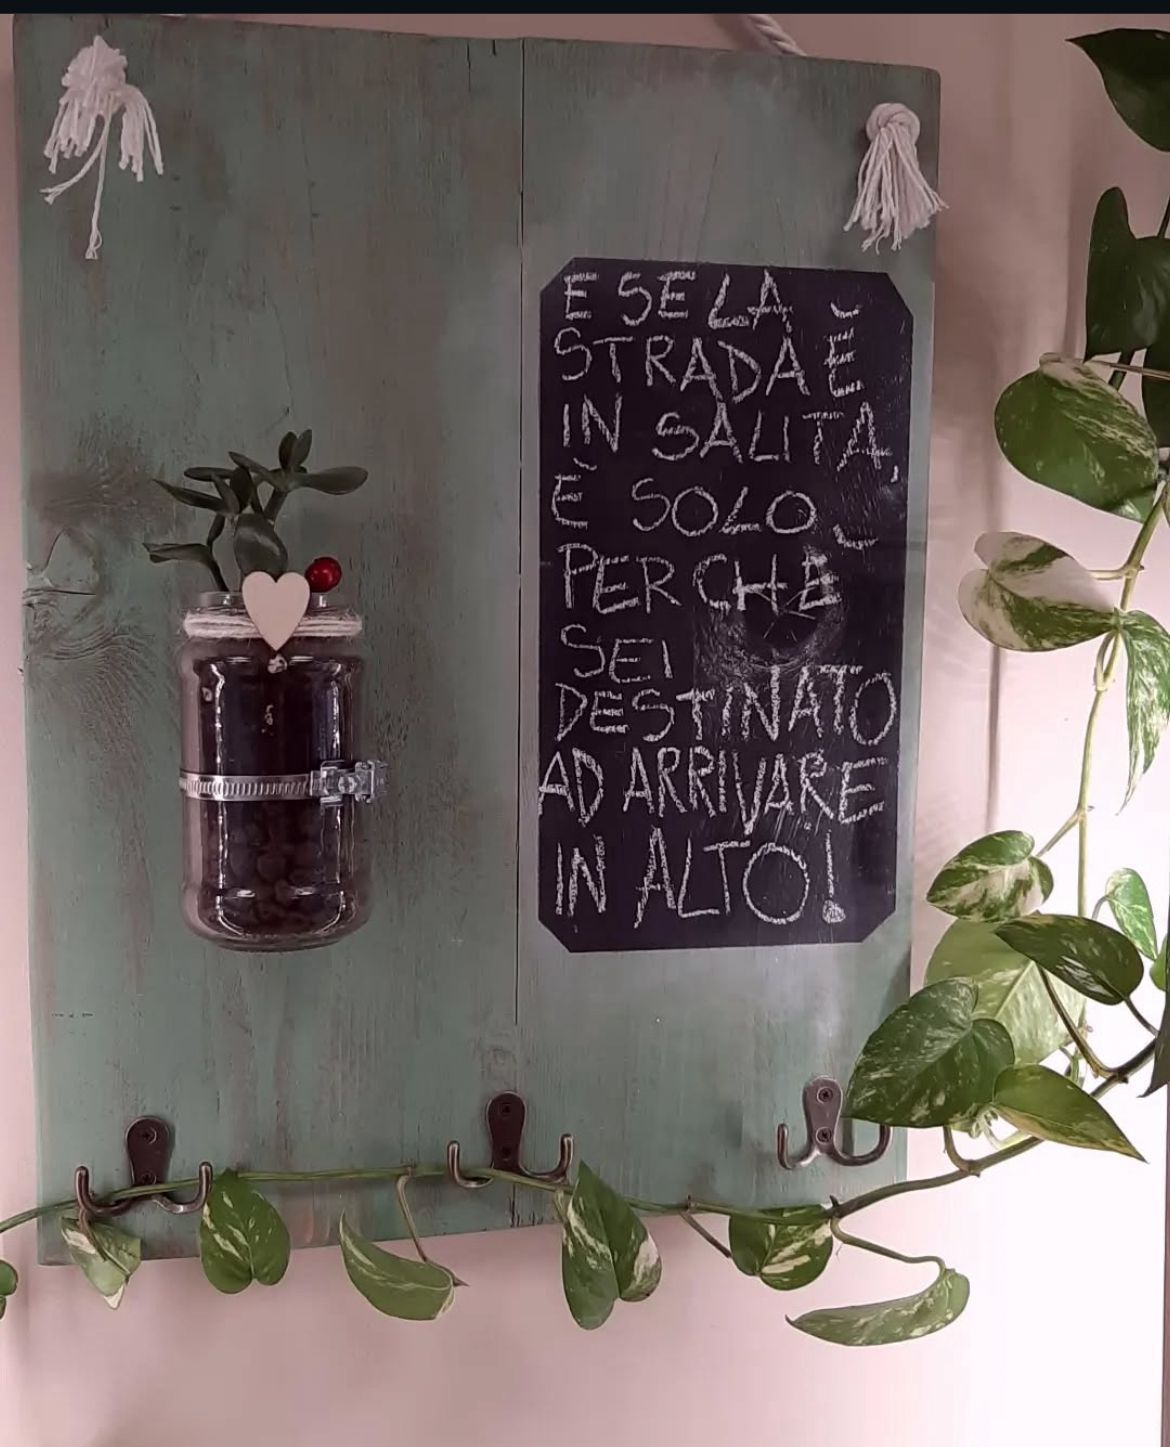 E SE LA
STRADA È
IN SALITA,
È SOLO
PERCHÈ
SEI
DESTINATO
AD ARRIVARE
IN ALTO!